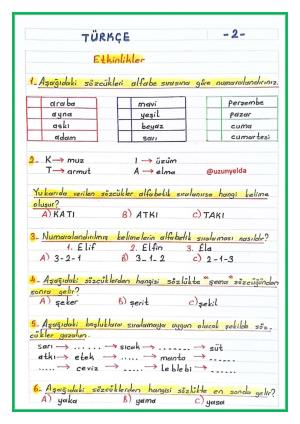 TÜRKÇE -2-
Etkinlikler
1- Aşağıdaki sözcükleri alfabe sırasına göre numaralandırınız.
araba mavi perşembe
ayna yeşil pazar
askı beyaz cuma
adam sarı cumartesi
2- K → muz I → üzüm
T → armut A → elma @uzunyelda
Yukarıda verilen sözcükler alfabetik sıralanırsa hangi kelime
oluşur?
A) KATI B) ATKI C) TAKI
3- Numaralandırılmış kelimelerin alfabetik sıralaması nasıldır?
1. Elif 2. Elfin 3. Ela
A) 3-2-1 B) 3-1-2 C) 2-1-3
4- Aşağıdaki sözcüklerden hangisi sözlükte "şema" sözcüğünden
sonra gelir?
A) şeker B) şerit C) şekil
5- Aşağıdaki boşluklara sıralamaya uygun olacak şekilde söz-
cükler yazalım.
sarı → ...... → sıcak → ........ → süt
atkı → etek → ..... → manto → ......
..... → ceviz → ..... → leblebi → ......
6- Aşağıdaki sözcüklerden hangisi sözlükte en sonda gelir?
A) yaka B) yama C) yasa